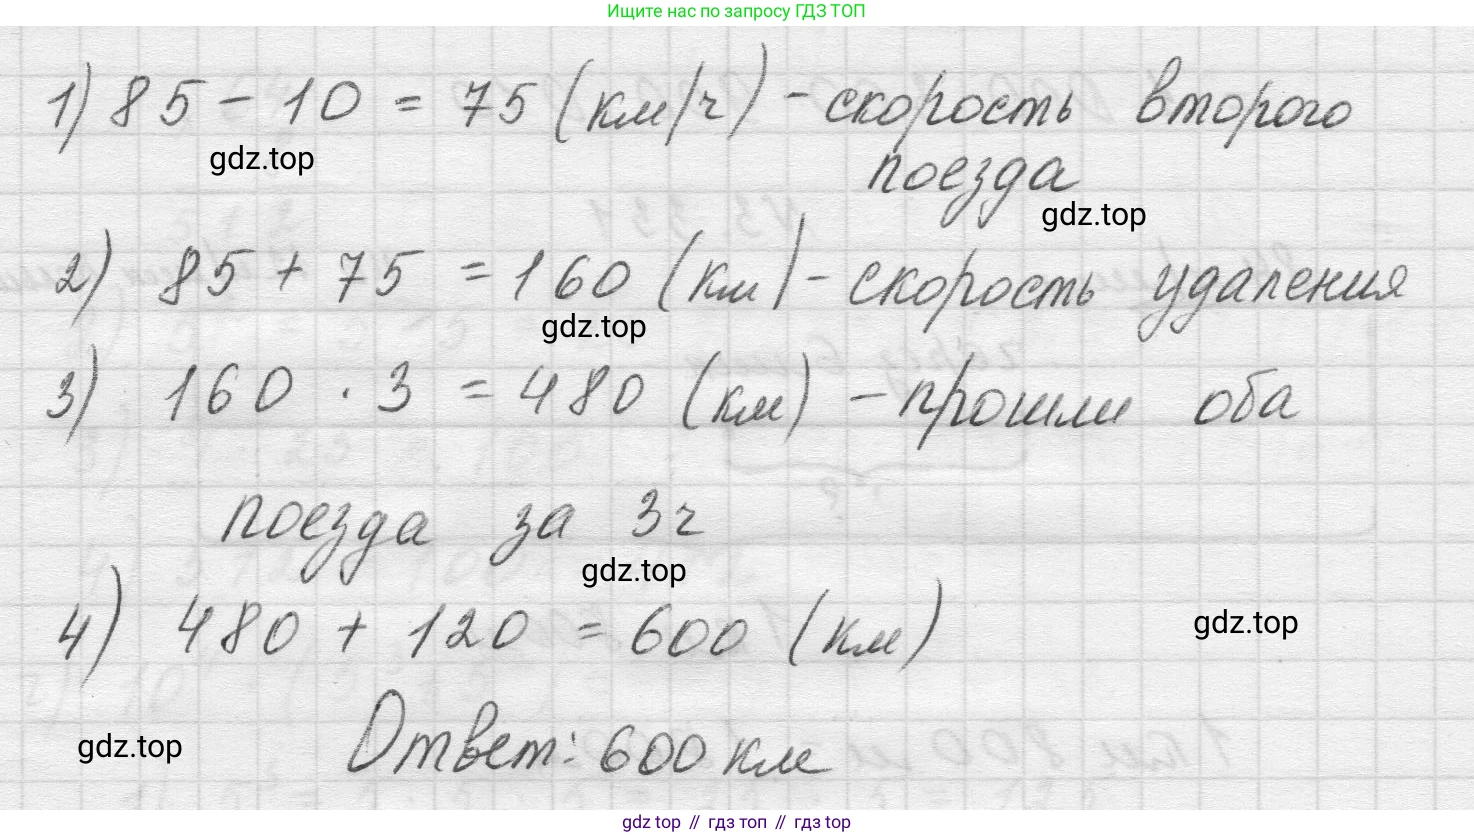 Ищите нас по запросу ГДЗ ТОП
1) 85 - 10 = 75 (км/ч) - скорость второго
gdz.top
поезда
gdz.top
2) 85 + 75 = 160 (км) - скорость удаления
gdz.top
3) 160 · 3 = 480 (км) - прошли оба
поезда за 3ч
gdz.top
4) 480 + 120 = 600 (км)
gdz.top
Ответ: 600 км
gdz.top
gdz top // гдз топ // гдз top